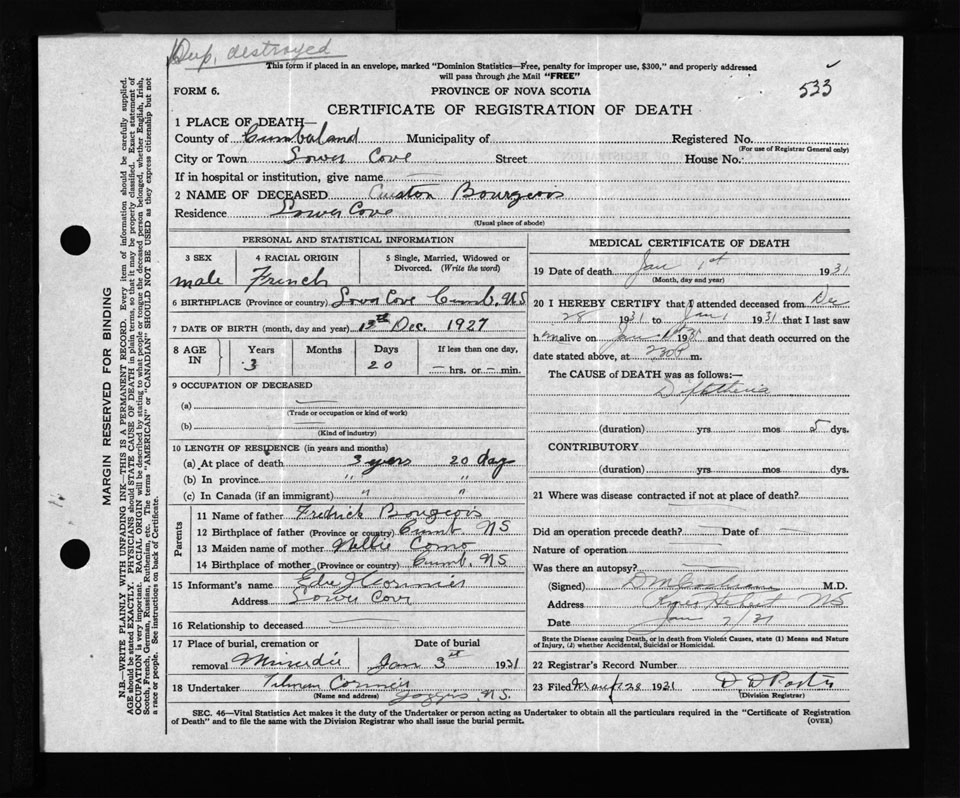 Dup. destroyed
This form if placed in an envelope, marked "Dominion Statistics—Free, penalty for improper use, $300," and properly addressed
will pass through the Mail "FREE"
FORM 6.
PROVINCE OF NOVA SCOTIA
533
CERTIFICATE OF REGISTRATION OF DEATH
1 PLACE OF DEATH—
County of Cumberland Municipality of Registered No.
(For use of Registrar General only)
City or Town Lower Cove Street House No.
If in hospital or institution, give name
2 NAME OF DECEASED Bourgeois
Residence Lower Cove
(Usual place of abode)
PERSONAL AND STATISTICAL INFORMATION
3 SEX 4 RACIAL ORIGIN 5 Single, Married, Widowed or Divorced. (Write the word)
male French
6 BIRTHPLACE (Province or country) Lower Cove Cumb. N.S
7 DATE OF BIRTH (month, day and year) 13th Dec. 1927
8 AGE IN Years Months Days If less than one day,
3 20 — hrs. or — min.
9 OCCUPATION OF DECEASED
(a)
(Trade or occupation or kind of work)
(b)
(Kind of industry)
10 LENGTH OF RESIDENCE (in years and months)
(a) At place of death 3 years 20 day
(b) In province " "
(c) In Canada (if an immigrant) " "
Parents
11 Name of father Fredrick Bourgeois
12 Birthplace of father (Province or country) Cumb N S
13 Maiden name of mother Nellie Como
14 Birthplace of mother (Province or country) Cumb. N S
15 Informant's name Cormier
Address Lower Cove
16 Relationship to deceased
17 Place of burial, cremation or removal Minudie
Date of burial Jan 3rd 1931
18 Undertaker Tilman Cormier
(Name and address) Joggins N.S.
MEDICAL CERTIFICATE OF DEATH
19 Date of death Jan 1st 1931
(Month, day and year)
20 I HEREBY CERTIFY that I attended deceased from Dec
28 1931 to Jan 1 1931 that I last saw
him alive on Jan 1st 1931 and that death occurred on the
date stated above, at m.
The CAUSE of DEATH was as follows:—
Diphtheria
(duration) yrs mos 5 dys.
CONTRIBUTORY
(duration) yrs mos dys.
21 Where was disease contracted if not at place of death?
Did an operation precede death? Date of
Nature of operation
Was there an autopsy?
(Signed) D M Cochrane M.D.
Address River Hebert N S
Date Jan 7/31
State the Disease causing Death, or in death from Violent Causes, state (1) Means and Nature
of Injury, (2) whether Accidental, Suicidal or Homicidal.
22 Registrar's Record Number
23 Filed 28 1931
(Division Registrar)
SEC. 46—Vital Statistics Act makes it the duty of the Undertaker or person acting as Undertaker to obtain all the particulars required in the "Certificate of Registration
of Death" and to file the same with the Division Registrar who shall issue the burial permit.
(OVER)
MARGIN RESERVED FOR BINDING
N.B.—WRITE PLAINLY WITH UNFADING INK—THIS IS A PERMANENT RECORD. Every item of information should be carefully supplied.
AGE should be stated EXACTLY. PHYSICIANS should STATE CAUSE OF DEATH in plain terms, so that it may be properly classified. Exact statement of
OCCUPATION is very important. RACIAL ORIGIN will be described by stating to what people or tongue the deceased person belonged, whether English, Irish,
Scotch, French, German, Russian, Ruthenian, etc. The terms "AMERICAN" or "CANADIAN" SHOULD NOT BE USED as they express citizenship but not
a race or people. See instructions on back of Certificate.